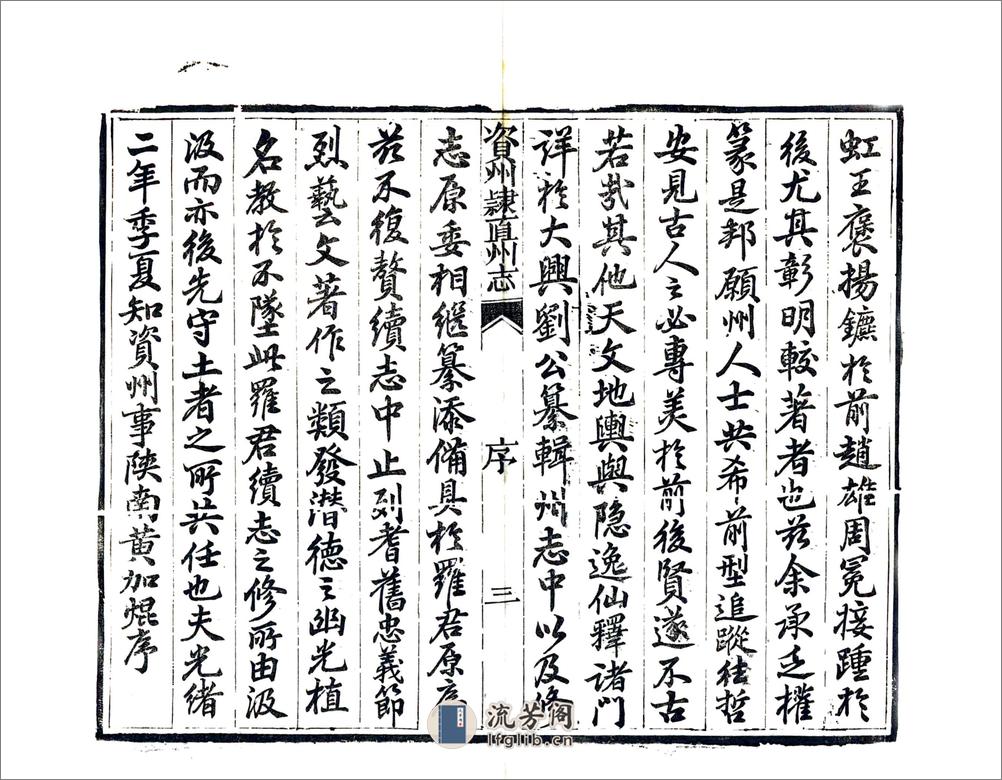 虹王褒揚鑣於前趙雄周冕接踵於
後尤其彰明較著者也茲余承乏權
篆是邦願州人士共希前型追蹤往哲
安見古人之必專美於前後賢遂不古
若哉其他天文地輿與隐逸仙釋諸門
詳於大興劉公纂輯州志中以及修
資州隷直州志
序
三
志原委相繼纂添備具於羅君原序
茲不復贅續志中止列耆舊忠義節
烈藝文著作之類發潛德之幽光植
名教於不墜此羅君續志之修所由汲
汲而亦後先守土者之所共任也夫光緒
二年季夏知資州事陝南黄加焜序
流芳阁
lfglib.cn